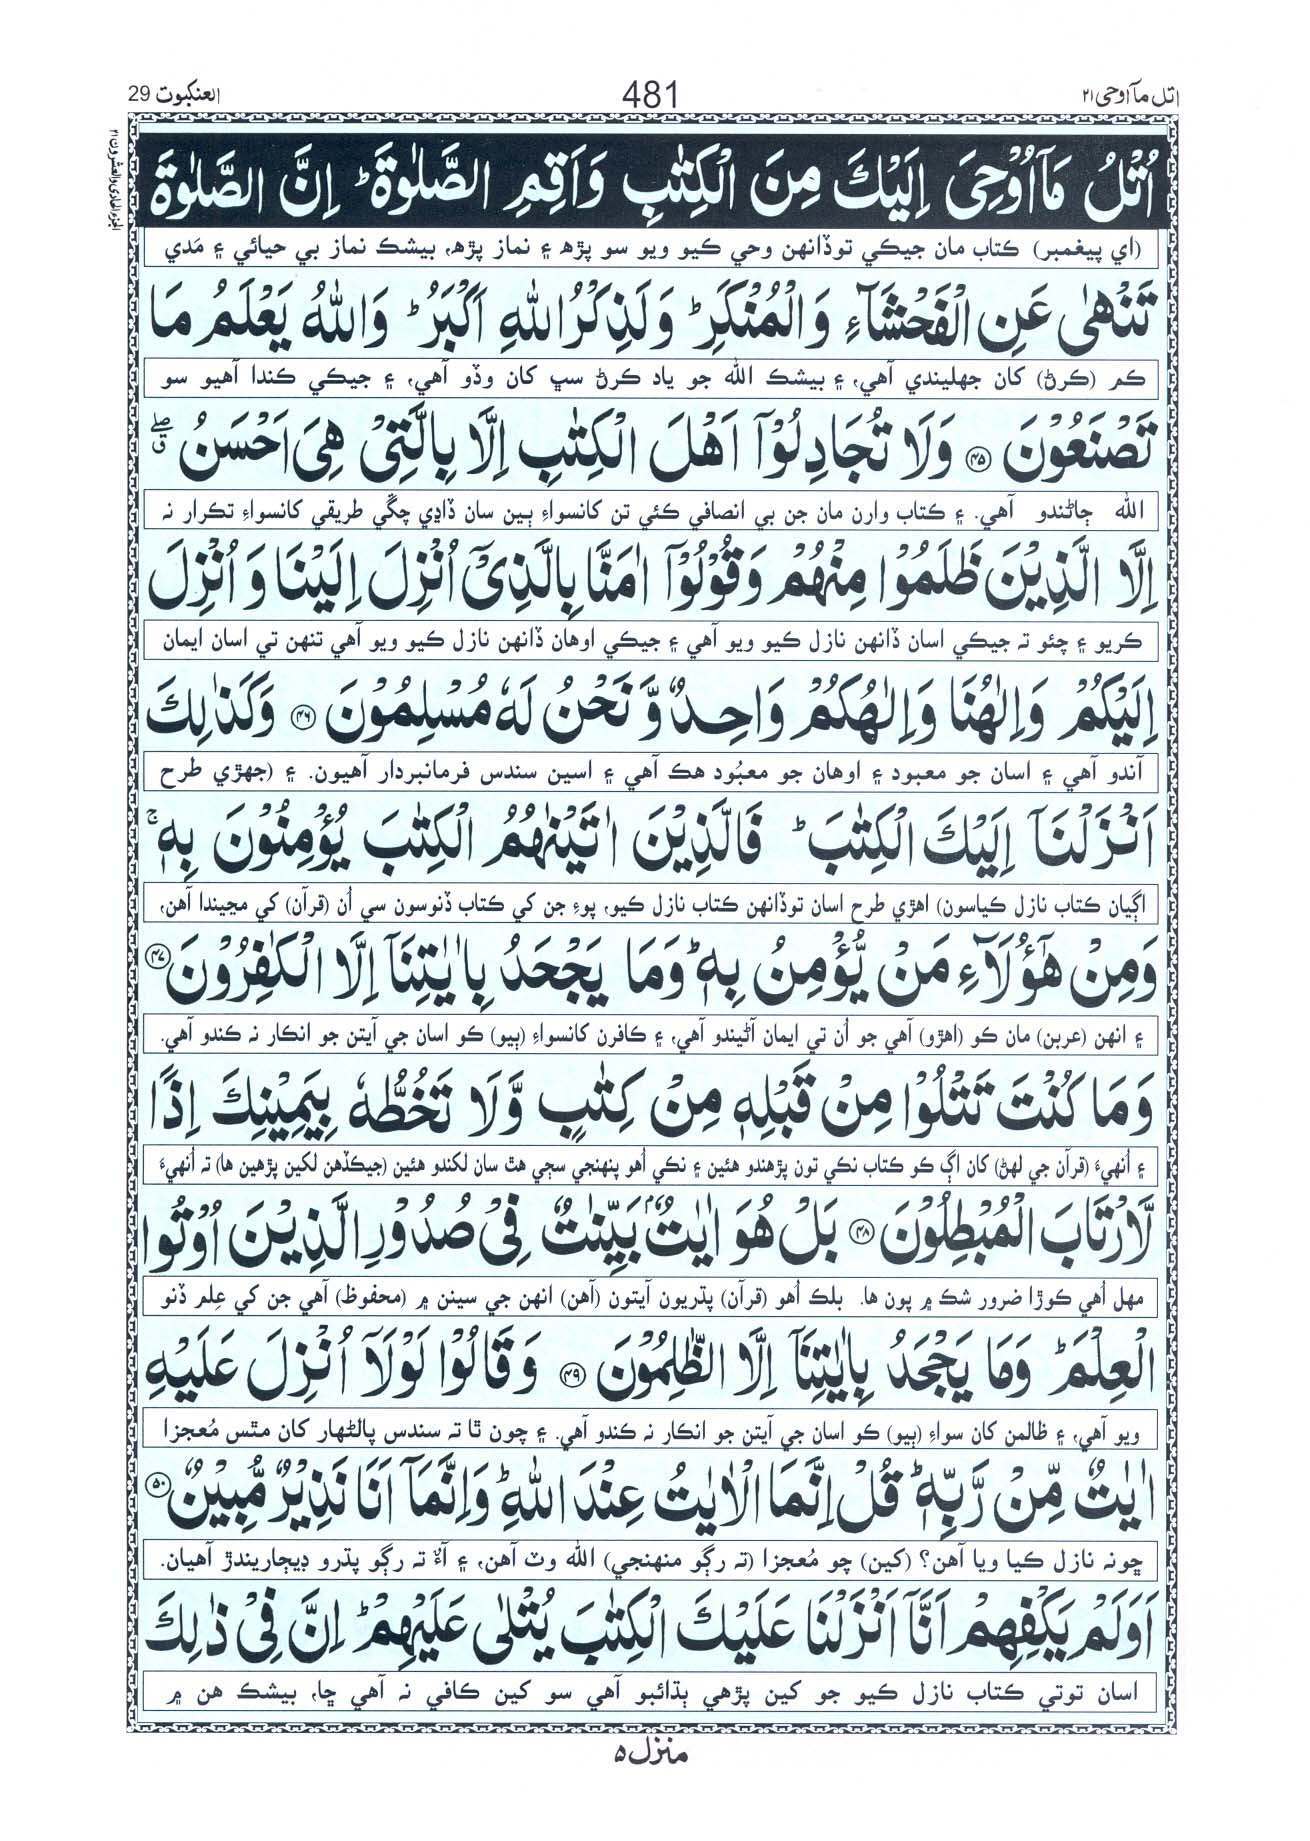 اتل مآاوحی ۲۱ 481 العنكبوت 29
الجزء الحادی والعشرون ۲۱
اُتْلُ مَآاُوْحِیَ اِلَیْكَ مِنَ الْكِتٰبِ وَاَقِمِ الصَّلٰوةَ ؕ اِنَّ الصَّلٰوةَ
(اي پيغمبر) ڪتاب مان جيڪي توڏانهن وحي ڪيو ويو سو پڙھ ۽ نماز پڙھ، بيشڪ نماز بي حيائي ۽ مَدي
تَنْهٰی عَنِ الْفَحْشَآءِ وَالْمُنْكَرِ ؕ وَلَذِكْرُ اللّٰهِ اَكْبَرُ ؕ وَاللّٰهُ یَعْلَمُ مَا
ڪم (ڪرڻ) کان جهليندي آهي، ۽ بيشڪ الله جو ياد ڪرڻ سڀ کان وڏو آهي، ۽ جيڪي ڪندا آهيو سو
تَصْنَعُوْنَ ﴿۴۵﴾ وَلَا تُجَادِلُوْۤا اَهْلَ الْكِتٰبِ اِلَّا بِالَّتِیْ هِیَ اَحْسَنُ ۖق
الله ڄاڻندو آهي. ۽ ڪتاب وارن مان جن بي انصافي ڪئي تن کانسواءِ ٻين سان ڏاڍي چڱي طريقي کانسواءِ تڪرار نہ
اِلَّا الَّذِیْنَ ظَلَمُوْا مِنْهُمْ وَقُوْلُوْۤا اٰمَنَّا بِالَّذِیْۤ اُنْزِلَ اِلَیْنَا وَ اُنْزِلَ
ڪريو ۽ چئو تہ جيڪي اسان ڏانهن نازل ڪيو ويو آهي ۽ جيڪي اوهان ڏانهن نازل ڪيو ويو آهي تنهن تي اسان ايمان
اِلَیْكُمْ وَاِلٰهُنَا وَاِلٰهُكُمْ وَاحِدٌ وَّنَحْنُ لَهٗ مُسْلِمُوْنَ ﴿۴۶﴾ وَكَذٰلِكَ
آندو آهي ۽ اسان جو معبود ۽ اوهان جو معبُود هڪ آهي ۽ اسين سندس فرمانبردار آهيون. ۽ (جهڙي طرح
اَنْزَلْنَاۤ اِلَیْكَ الْكِتٰبَ ؕ فَالَّذِیْنَ اٰتَیْنٰهُمُ الْكِتٰبَ یُؤْمِنُوْنَ بِهٖ ۚ
اڳيان ڪتاب نازل ڪياسون) اهڙي طرح اسان توڏانهن ڪتاب نازل ڪيو، پوءِ جن کي ڪتاب ڏنوسون سي اُن (قرآن) کي مڃيندا آهن،
وَمِنْ هٰۤؤُلَآءِ مَنْ یُّؤْمِنُ بِهٖ ؕ وَمَا یَجْحَدُ بِاٰیٰتِنَاۤ اِلَّا الْكٰفِرُوْنَ ﴿۴۷﴾
۽ انهن (عربن) مان ڪو (اهڙو) آهي جو اُن تي ايمان آڻيندو آهي، ۽ ڪافرن کانسواءِ (ٻيو) ڪو اسان جي آيتن جو انڪار نہ ڪندو آهي.
وَمَا كُنْتَ تَتْلُوْا مِنْ قَبْلِهٖ مِنْ كِتٰبٍ وَّلَا تَخُطُّهٗ بِیَمِیْنِكَ اِذًا
۽ اُنهيءَ (قرآن جي لهڻ) کان اڳ ڪو ڪتاب نڪي تون پڙهندو هئين ۽ نڪي اُهو پنهنجي سڄي هٿ سان لکندو هئين (جيڪڏهن لکين پڙهين ها) تہ اُنهيءَ
لَّارْتَابَ الْمُبْطِلُوْنَ ﴿۴۸﴾ بَلْ هُوَ اٰیٰتٌۢ بَیِّنٰتٌ فِیْ صُدُوْرِ الَّذِیْنَ اُوْتُوا
مهل اُهي ڪوڙا ضرور شڪ ۾ پون ها. بلڪ اُهو (قرآن) پڌريون آيتون (آهن) انهن جي سينن ۾ (محفوظ) آهي جن کي عِلم ڏنو
الْعِلْمَ ؕ وَمَا یَجْحَدُ بِاٰیٰتِنَاۤ اِلَّا الظّٰلِمُوْنَ ﴿۴۹﴾ وَقَالُوْا لَوْلَاۤ اُنْزِلَ عَلَیْهِ
ويو آهي، ۽ ظالمن کان سواءِ (ٻيو) ڪو اسان جي آيتن جو انڪار نہ ڪندو آهي. ۽ چون ٿا تہ سندس پالڻهار کان مٿس مُعجزا
اٰیٰتٌ مِّنْ رَّبِّهٖ ؕ قُلْ اِنَّمَا الْاٰیٰتُ عِنْدَ اللّٰهِ ؕ وَاِنَّمَاۤ اَنَا نَذِیْرٌ مُّبِیْنٌ ﴿۵۰﴾
ڇونہ نازل ڪيا ويا آهن؟ (کين) چو مُعجزا (تہ رڳو منهنجي) الله وٽ آهن، ۽ آءٌ تہ رڳو پڌرو ڊيڄاريندڙ آهيان.
اَوَلَمْ یَكْفِهِمْ اَنَّاۤ اَنْزَلْنَا عَلَیْكَ الْكِتٰبَ یُتْلٰی عَلَیْهِمْ ؕ اِنَّ فِیْ ذٰلِكَ
اسان توتي ڪتاب نازل ڪيو جو کين پڙهي ٻڌائبو آهي سو کين ڪافي نہ آهي ڇا، بيشڪ هن ۾
منزل ۵